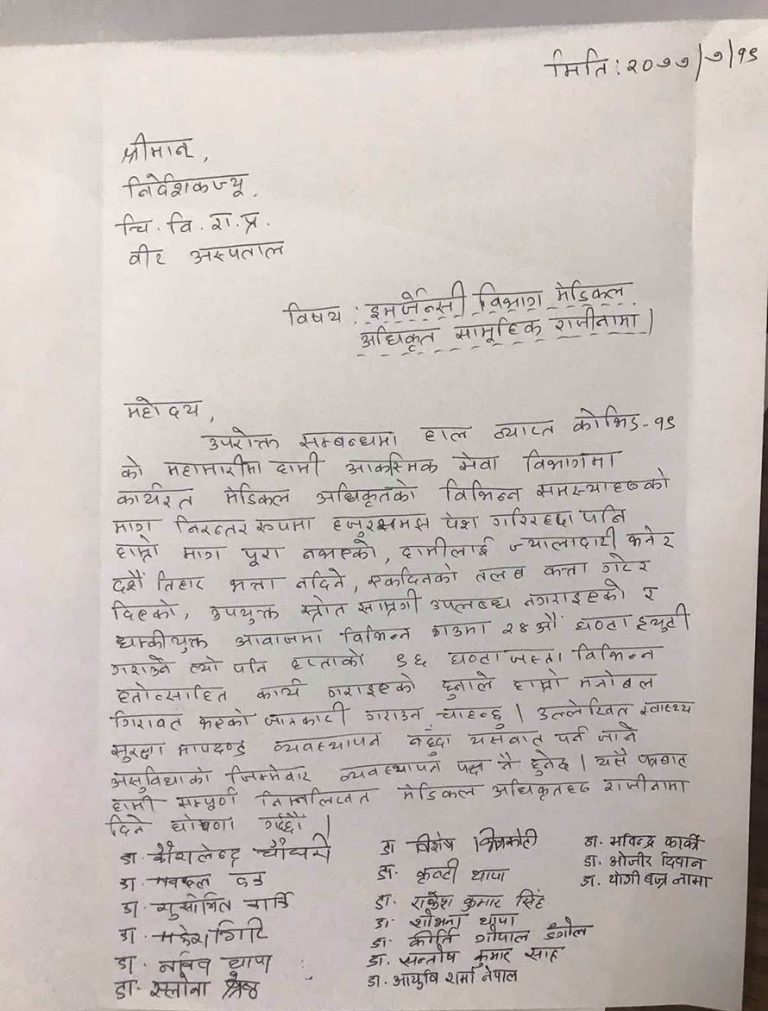 मिति: २०७७/७/१९
श्रीमान्,
निर्देशकज्यू,
चि. वि. रा. प्र.
वीर अस्पताल
विषय : इमर्जेन्सी विभाग मेडिकल
अधिकृत सामूहिक राजीनामा।
महोदय,
उपरोक्त सम्बन्धमा हाल व्याप्त कोभिड-१९
को महामारीमा हामी आकस्मिक सेवा विभागमा
कार्यरत मेडिकल अधिकृतको विभिन्न समस्याहरुको
माग निरन्तर रुपमा हजुरसमक्ष पेश गरिरहदा पनि
हाम्रो माग पूरा नभएको, हामीलाई ज्यालादारी भनेर
दशैं तिहार भत्ता नदिने, एकदिनको तलब कत्ता गरेर
दिएको, उपयुक्त स्त्रोत साम्रगी उपलब्ध नगराइएको र
धम्कीयुक्त आवाजमा विभिन्न ठाउमा २४ औं घण्टा ड्युटी
गराउने त्यो पनि हप्ताको ९६ घण्टा जस्ता विभिन्न
हतोत्साहित कार्य गराइएको हुनाले हाम्रो मनोबल
गिरावट भएको जानकारी गराउन चाहन्छु। उल्लेखित स्वास्थ्य
सुरक्षा मापदण्ड व्यवस्थापन नहुँदा यसबाट पर्न जाने
असुविधाको जिम्मेवार व्यवस्थापन पक्ष नै हुनेछ। यसै पत्रबाट
हामी सम्पूर्ण निम्नलिखित मेडिकल अधिकृतहरु राजीनामा
दिने घोषणा गर्दछौं।
डा. कौशलेन्द्र चौधरी
डा.
डा. सुशोभित
डा. महेश गिरि
डा. थापा
डा. सलोना श्रेष्ठ
डा. विशेष
डा. कृन्टी थापा
डा. राकेश कुमार सिंह
डा. शोभना थापा
डा. कीर्ति गोपाल डंगोल
डा. सन्तोष कुमार साह
डा. आयुषि शर्मा नेपाल
डा. भविन्द्र कार्की
डा. ओजीर दिवान
डा. योगी बज्र लामा